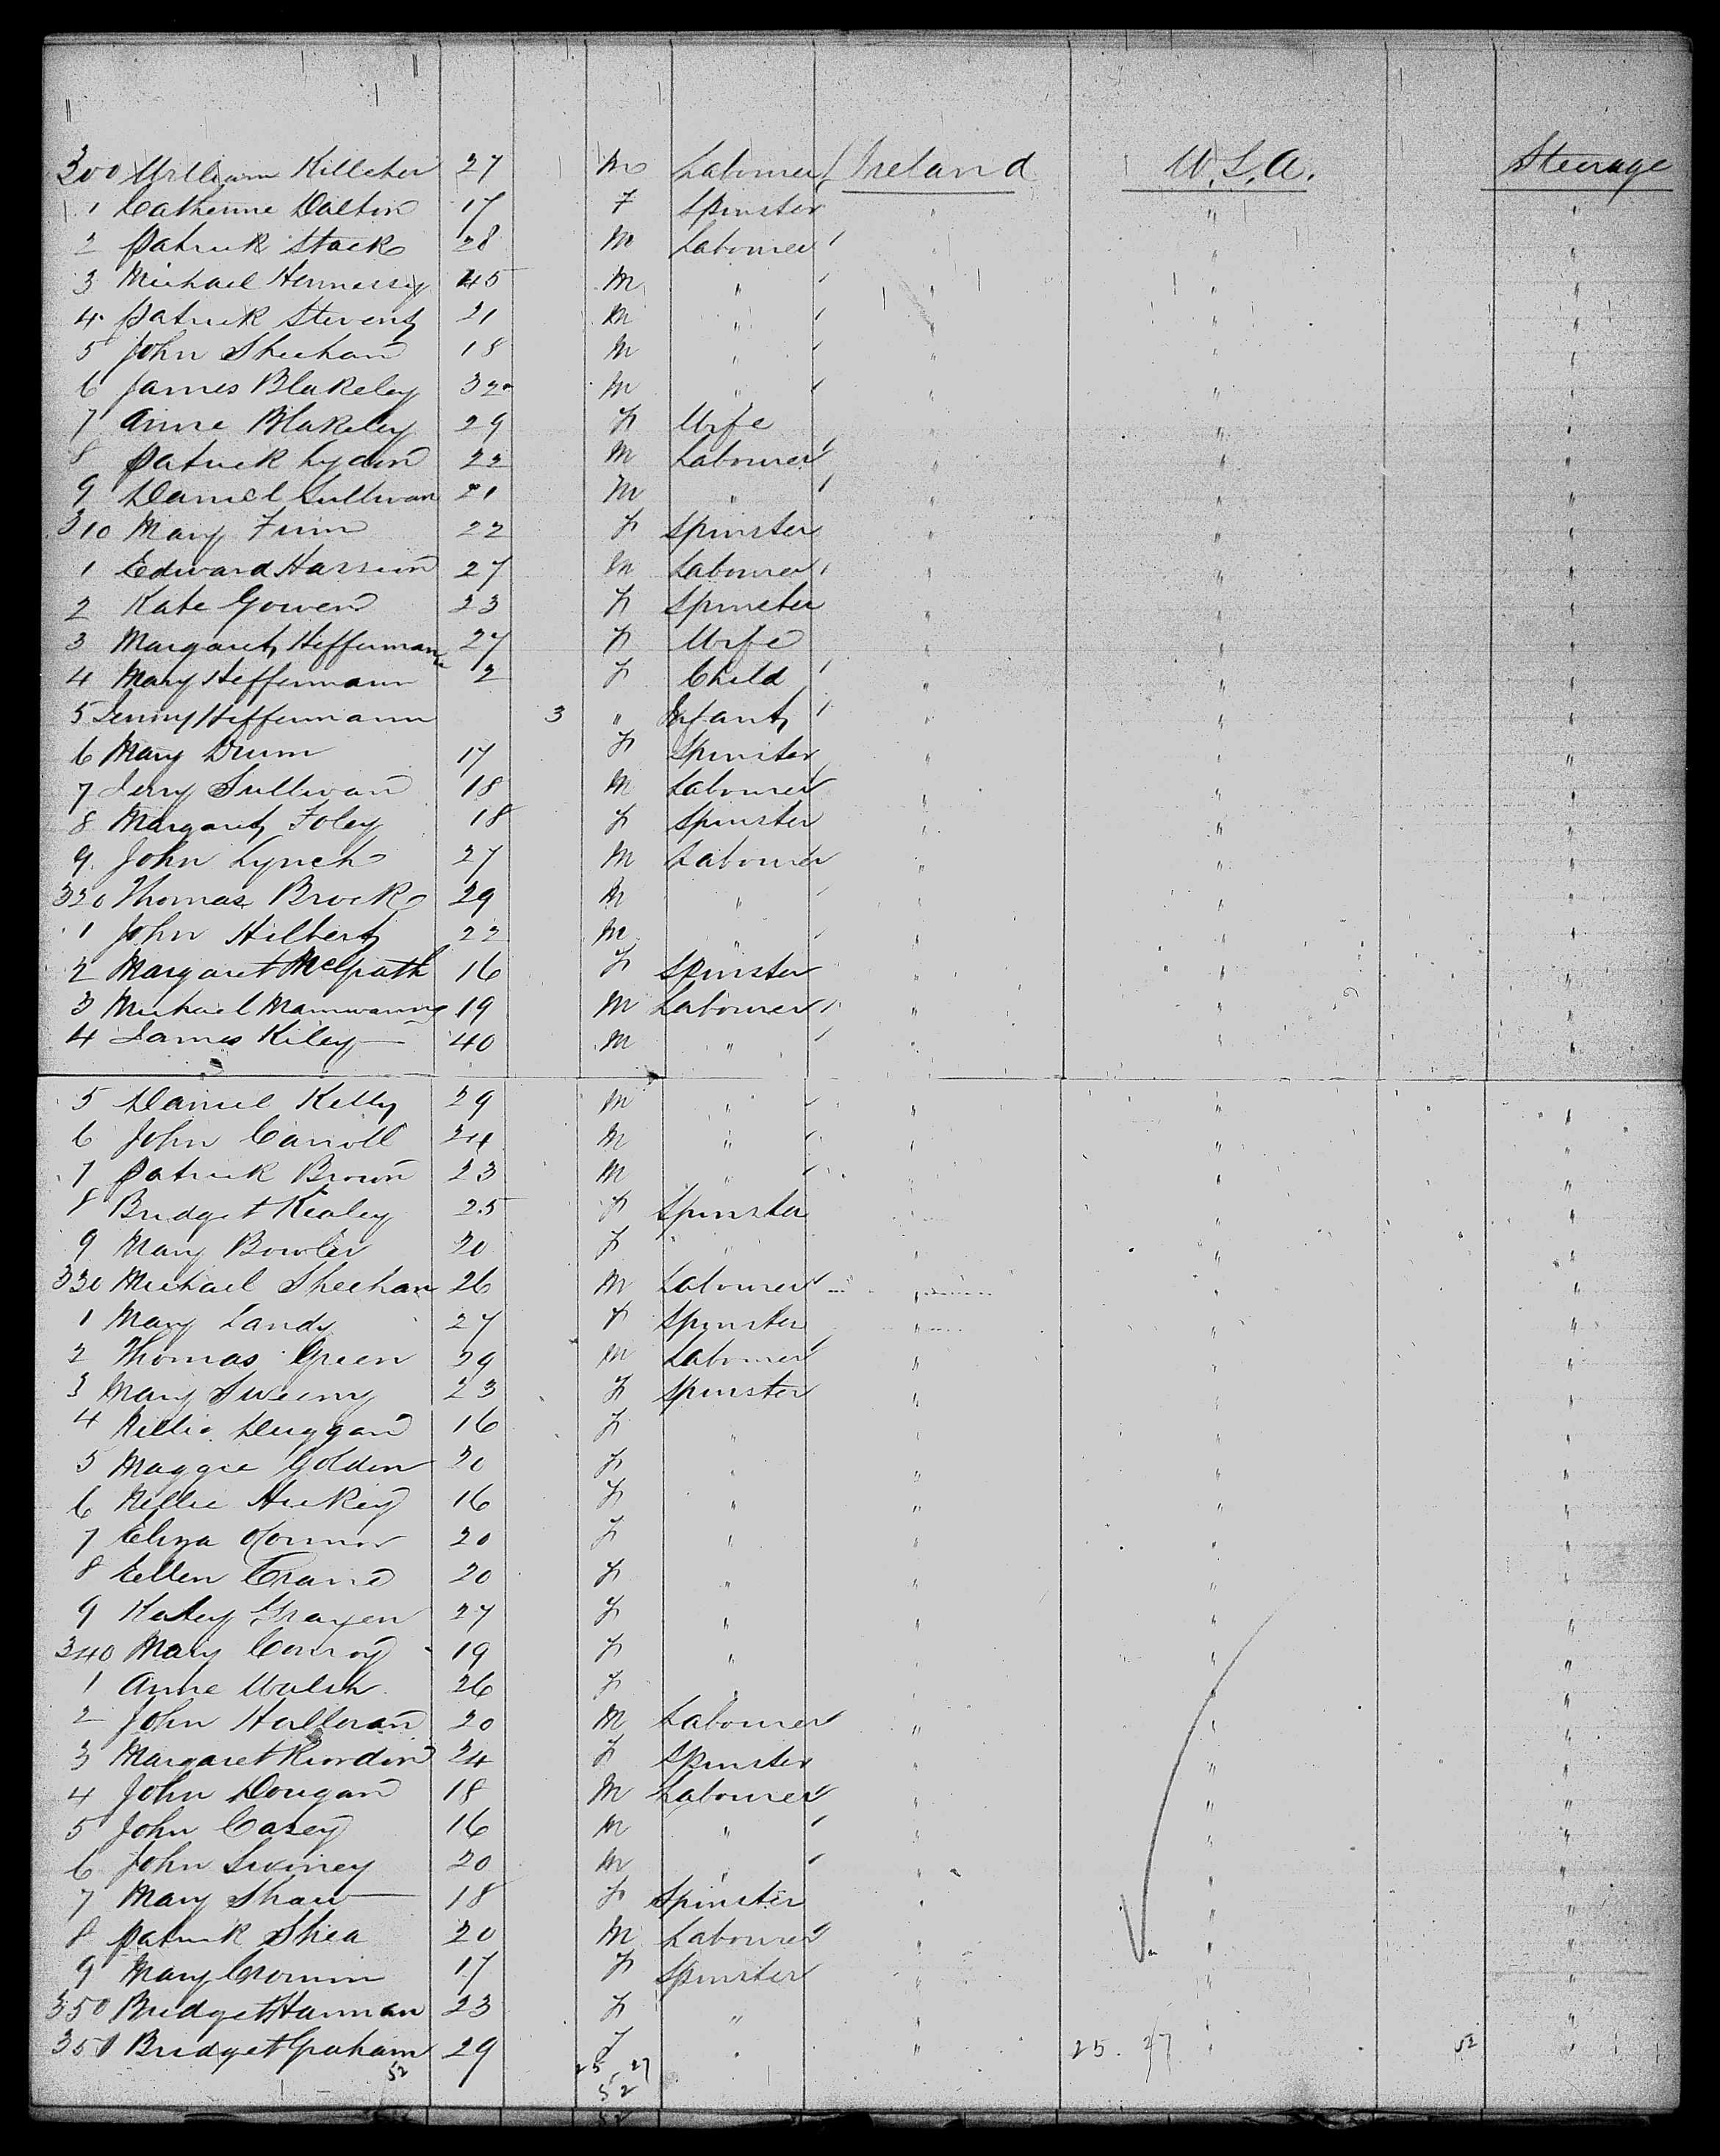 300 William Killeher 27 M Labourer Ireland U.S.A. Steerage
1 Catherine Dalton 17 F Spinster " " "
2 Patrick Stack 28 M Labourer " " "
3 Michael Hennessy 45 M " " " "
4 Patrick Stevens 21 M " " " "
5 John Sheehan 18 M " " " "
6 James Blakeley 32 M " " " "
7 Anne Blakeley 29 F Wife " " "
8 Patrick Lydon 22 M Labourer " " "
9 Daniel Sullivan 21 M " " " "
310 Mary Finn 22 F Spinster " " "
1 Edward 27 M Labourer " " "
2 Kate Gowen 23 F Spinster " " "
3 Margaret Heffernan 27 F Wife " " "
4 Mary Heffernann 2 F Child " " "
5 Heffernann 3 " Infant " " "
6 Mary Drum 17 F Spinster " " "
7 Jerry Sullivan 18 M Labourer " " "
8 Margaret Foley 18 F Spinster " " "
9 John Lynch 27 M Labourer " " "
320 Thomas Brock 29 M " " " "
1 John Hilbert 22 M " " " "
2 Margaret McGrath 16 F Spinster " " "
3 Michael Mannwaring 19 M Labourer " " "
4 James Kiley 40 M " " " "
5 Daniel Kelly 29 M " " " "
6 John Carroll 24 M " " " "
7 Patrick Brown 23 M " " " "
8 Bridget Kealey 25 F Spinster " " "
9 Mary Bowler 20 F " " " "
330 Michael Sheehan 26 M Labourer " " "
1 Mary Landy 27 F Spinster " " "
2 Thomas Green 29 M Labourer " " "
3 Mary Sweeny 23 F Spinster " " "
4 Nellie Duggan 16 F " " " "
5 Maggie Golden 20 F " " " "
6 Nellie Hickey 16 F " " " "
7 Eliza OConnor 20 F " " " "
8 Ellen Crane 20 F " " " "
9 Katey 27 F " " " "
340 Mary Conroy 19 F " " " "
1 Anne Walsh 26 F " " " "
2 John Halloran 20 M Labourer " " "
3 Margaret Riordin 24 F Spinster " " "
4 John Dougan 18 M Labourer " " "
5 John Casey 16 M " " " "
6 John Swiney 20 M " " " "
7 Mary Shaw 18 F Spinster " " "
8 Patrick Shea 20 M Labourer " " "
9 Mary Cronin 17 F Spinster " " "
350 Bridget Hannan 23 F " " " "
351 Bridget Graham 29 F " " 25 27 " 52 "
52 25 27
52